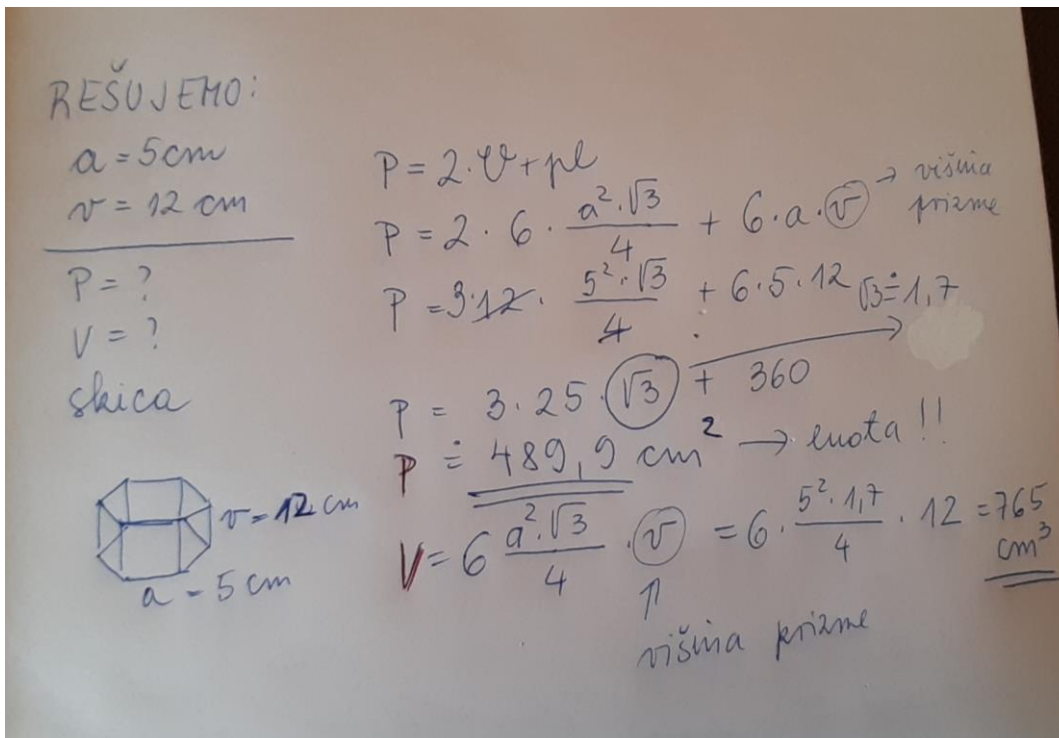 REŠUJEMO:
a = 5cm
v = 12 cm
P = ?
V = ?
skica
v = 12 cm
a = 5 cm
P = 2·O + pl
P = 2 · 6 · a²·√3/4 + 6·a·v → višina prizme
P = 3·12 · 5²·√3/4 + 6·5·12 √3≐1,7
P = 3·25·√3 + 360
P ≐ 489,9 cm² → enota!!
V = 6 a²·√3/4 · v = 6 · 5²·1,7/4 · 12 = 765 cm³
višina prizme